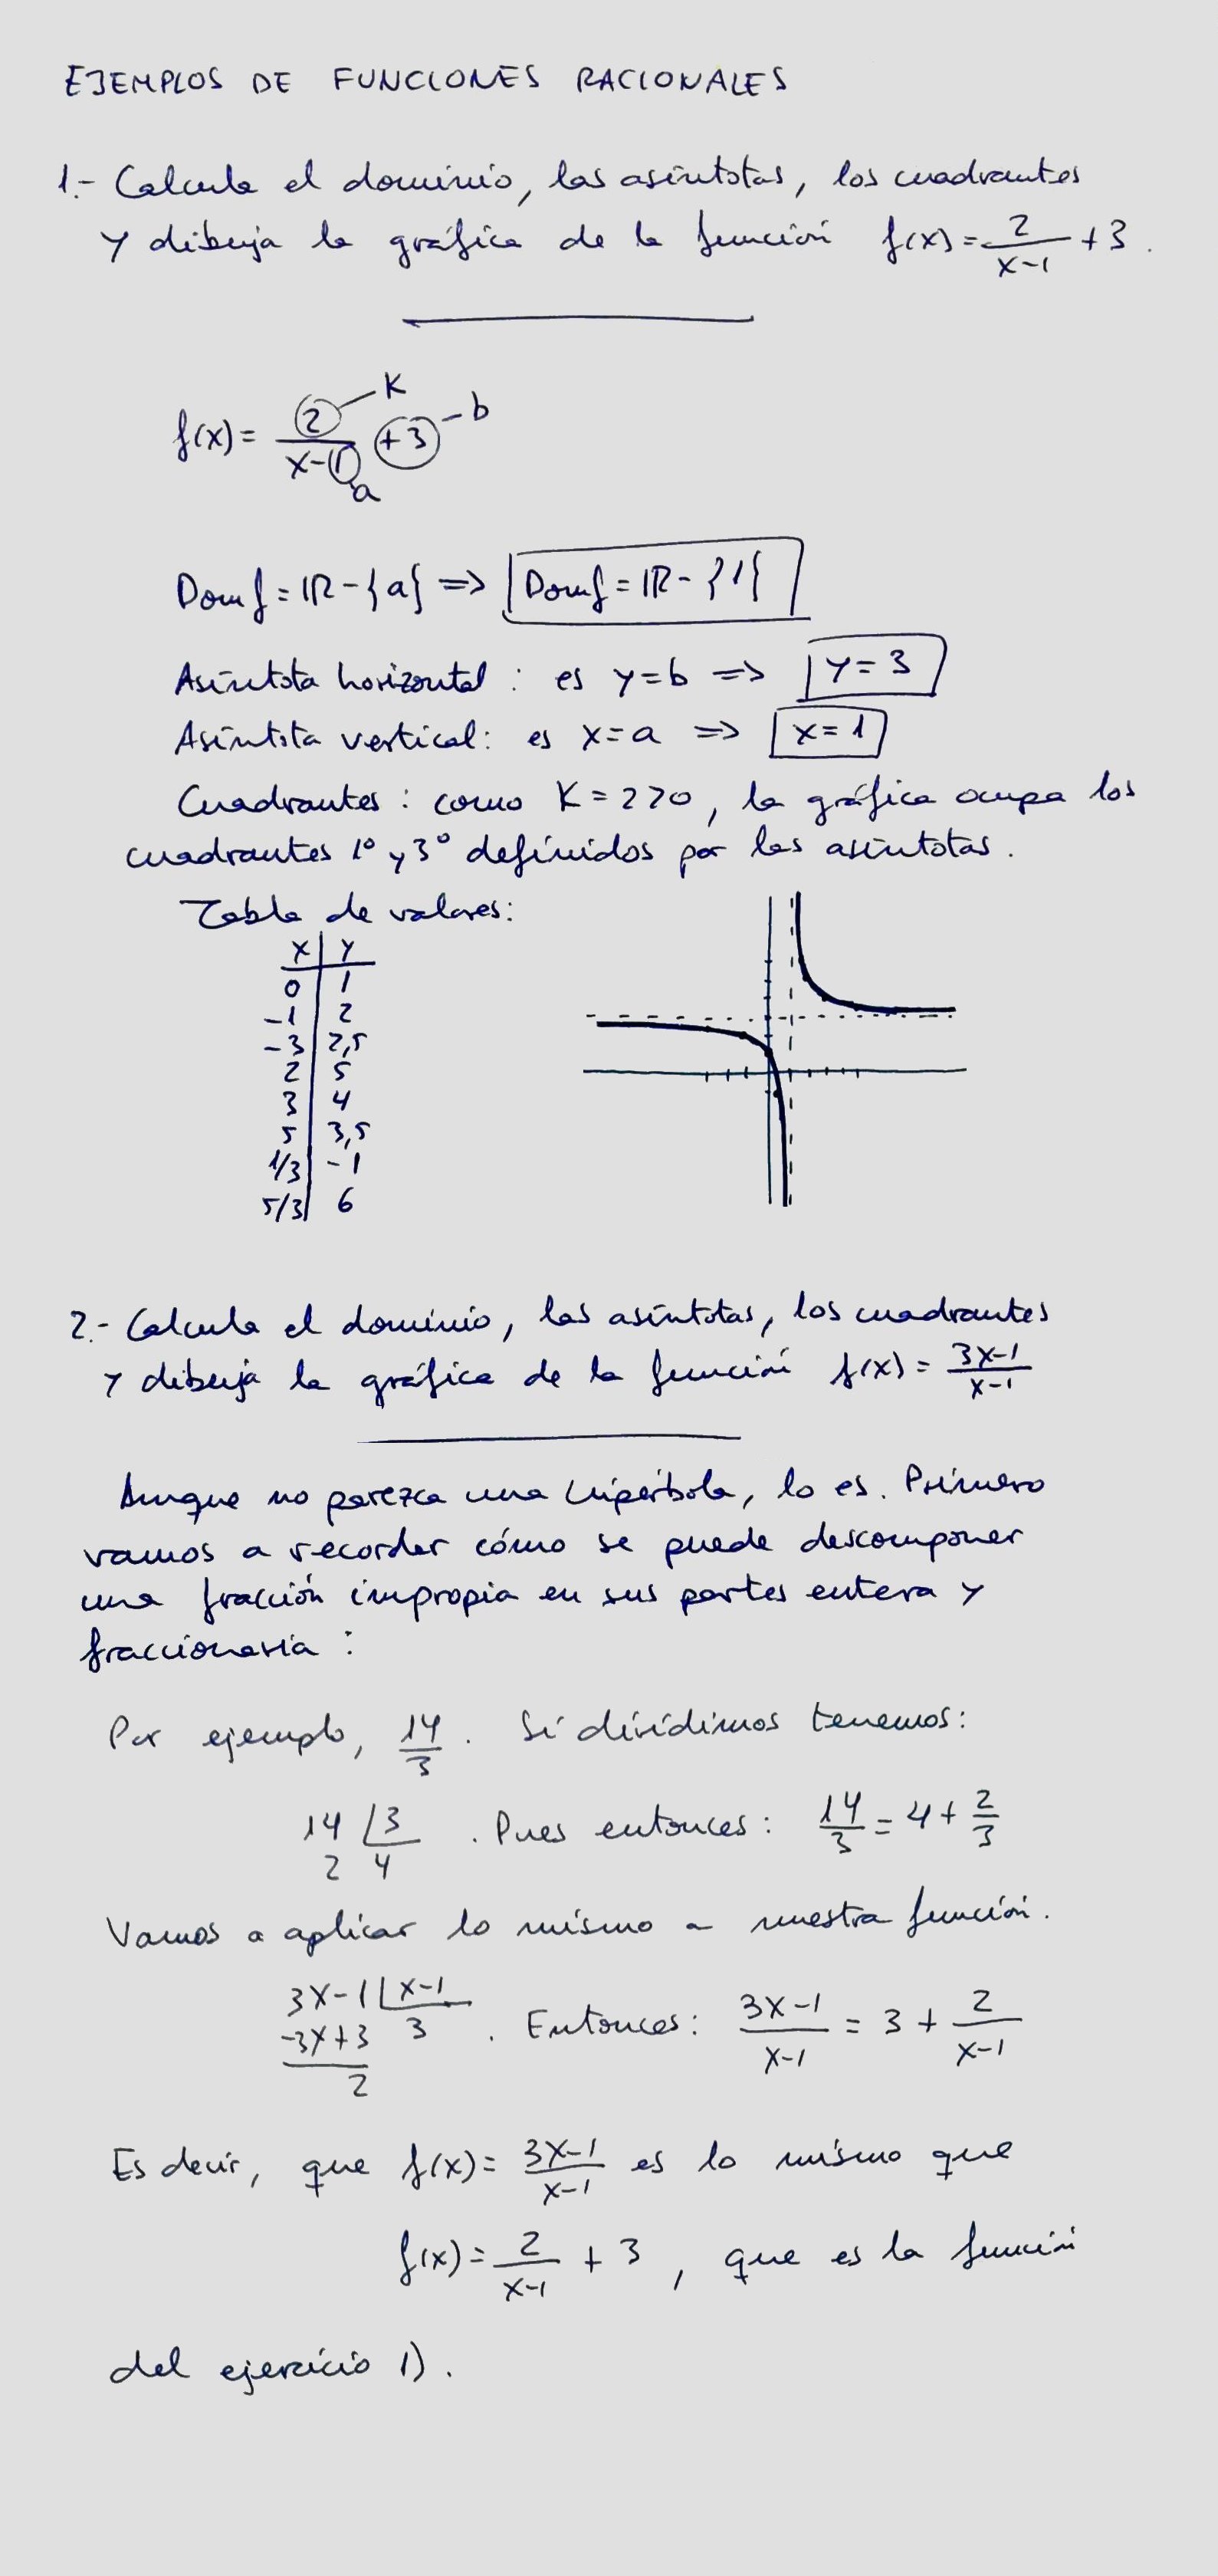 EJEMPLOS DE FUNCIONES RACIONALES
1.- Calcula el dominio, las asíntotas, los cuadrantes
y dibuja la gráfica de la función f(x) = 2/(x-1) + 3.
f(x) = 2/(x-1) + 3
K
b
a
Dom f = ℝ - {a} => Dom f = ℝ - {1}
Asíntota horizontal : es y=b => y=3
Asíntota vertical: es x=a => x=1
Cuadrantes : como K=2>0, la gráfica ocupa los
cuadrantes 1º y 3º definidos por las asíntotas.
Tabla de valores:
x | y
0 | 1
-1 | 2
-3 | 2,5
2 | 5
3 | 4
5 | 3,5
1/3 | -1
5/3 | 6
2.- Calcula el dominio, las asíntotas, los cuadrantes
y dibuja la gráfica de la función f(x) = (3x-1)/(x-1)
Aunque no parezca una hipérbola, lo es. Primero
vamos a recordar cómo se puede descomponer
una fracción impropia en sus partes entera y
fraccionaria :
Por ejemplo, 14/3. Si dividimos tenemos:
14 |3 . Pues entonces: 14/3 = 4 + 2/3
2 4
Vamos a aplicar lo mismo a nuestra función.
3x-1 |x-1
-3x+3 3 . Entonces: (3x-1)/(x-1) = 3 + 2/(x-1)
2
Es decir, que f(x) = (3x-1)/(x-1) es lo mismo que
f(x) = 2/(x-1) + 3, que es la función
del ejercicio 1).